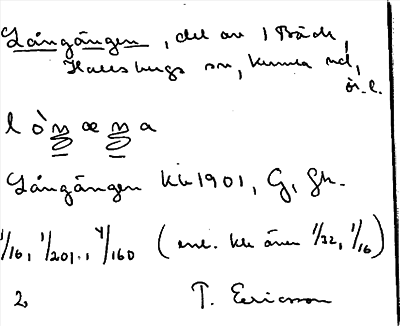 Långängen, del av 1 Bäck,
Hallsbergs sn, Kumla hd,
ör. l.
l ò n æ n a
Långängen Kb 1901, G, Gk.
1/16, 1/201., 4/160 (enl. kb även 1/32, 1/16)
2 T. Ericsson